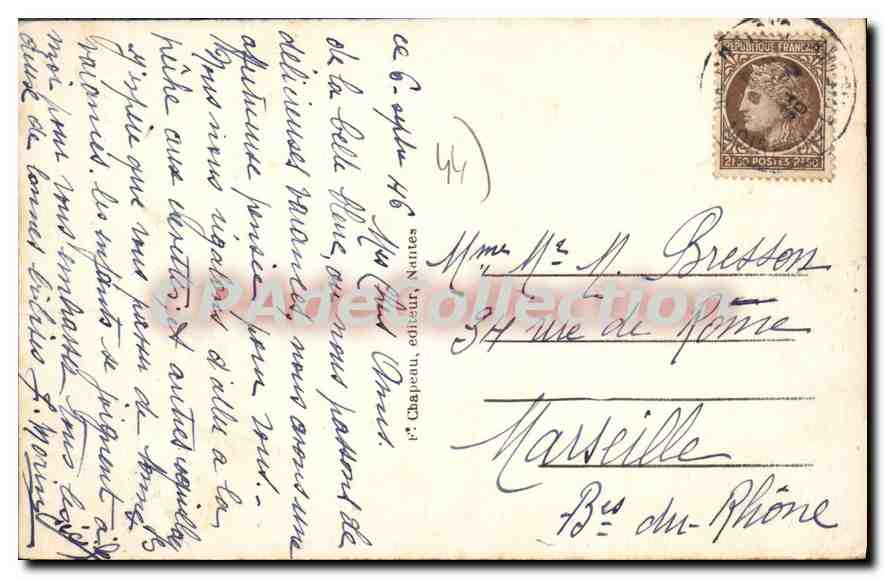 ce 6 septbre 46 Mes Chers Amis.
de la belle Bleue, où nous passons de
délicieuses vacances, nous avons une
affectueuse pensée pour vous.-
Nous nous régalons d'aller à la
pêche aux crevettes et autres
J'espère que vous avez de bonnes
vacances. Les enfants se joignent à
moi pour vous embrasser tous bien
deux de bonnes bises J. Morin
44)
Fs. Chapeau, editeur, Nantes
REPUBLIQUE FRANÇAISE
2F50 POSTES 2F50
Mme Mr M. Bresson
34 rue de Rome
Marseille
Bes du-Rhône
CPAdeCollection